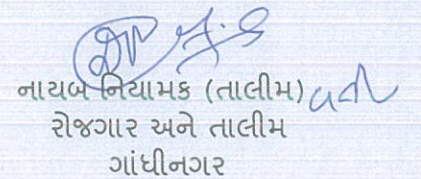 નાયબ નિયામક (તાલીમ) વતી
રોજગાર અને તાલીમ
ગાંધીનગર